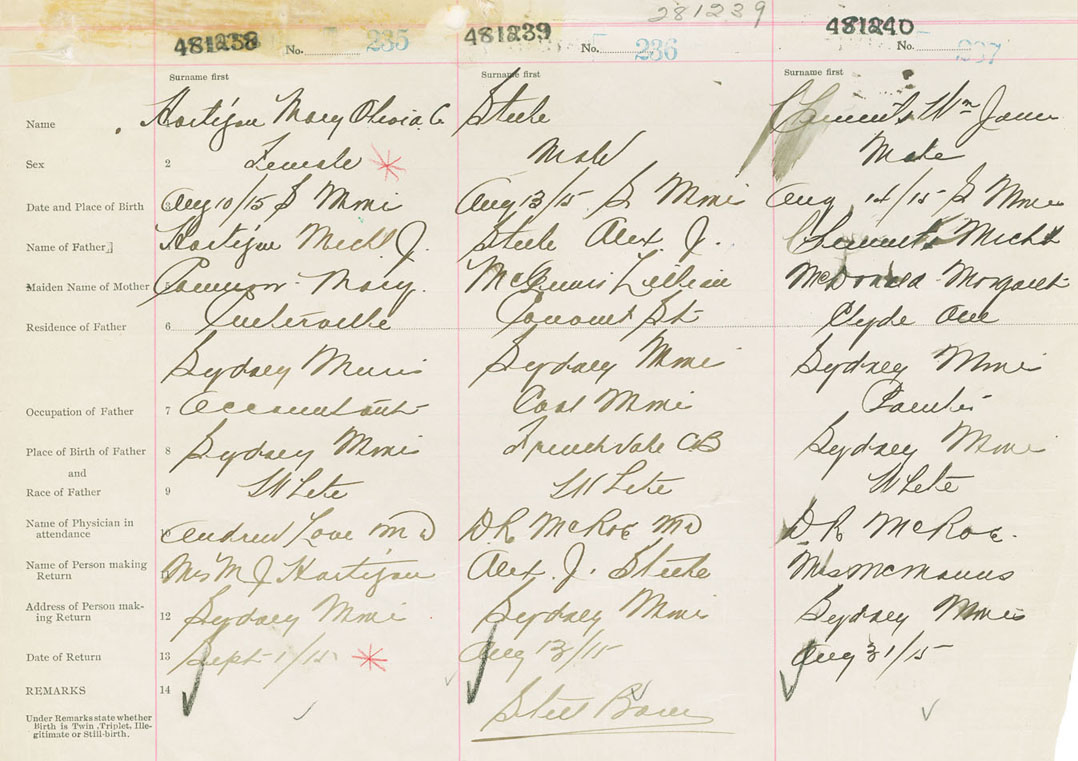 281239
481238 No. 235
481239 No. 236
481240 No. 237
Surname first
Surname first
Surname first
Name Hartigan Mary Olivia C. Steele Wm James
Sex 2 Female Male Male
Date and Place of Birth 3 Aug 10/15 S Mines Aug 13/15 S Mines Aug 14/15 S Mines
Name of Father Hartigan Michl J. Steele Alex J. Michl
Maiden Name of Mother 5 Connor Mary Lillian McDonald Margaret
Residence of Father 6 Centerville St Clyde Ave
Sydney Mines Sydney Mines Sydney Mines
Occupation of Father 7 Accountant Coal Mine
Place of Birth of Father 8 Sydney Mines Frenchvale CB Sydney Mines
and
Race of Father 9 White White White
Name of Physician in
attendance Andrew Love M D DR McRae MD DR McRae.
Name of Person making
Return Mrs M J Hartigan Alex. J. Steele Mrs McManus
Address of Person mak-
ing Return 12 Sydney Mines Sydney Mines Sydney Mines
Date of Return 13 Sept 1/15 Aug 13/15 Aug 31/15
REMARKS 14
Still Born
Under Remarks state whether
Birth is Twin, Triplet, Ille-
gitimate or Still-birth.